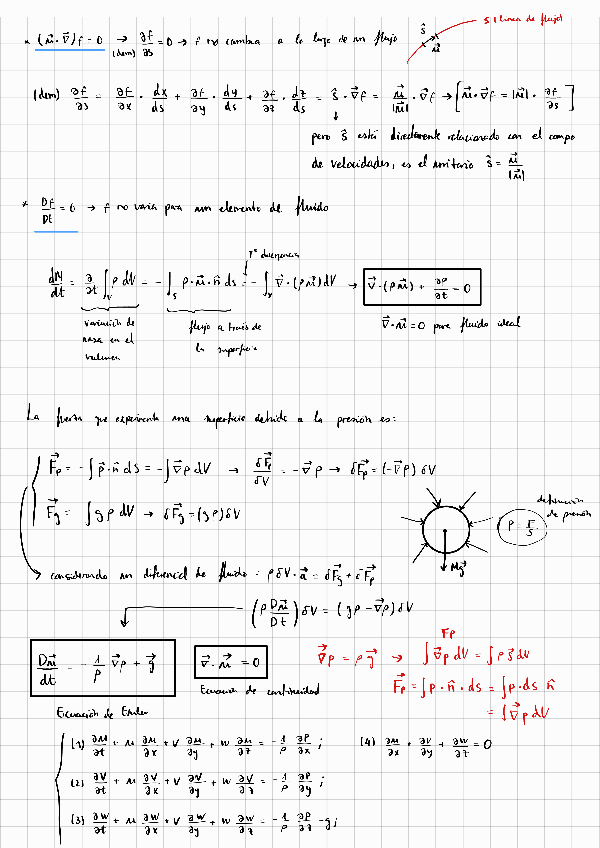 * (u⃗·∇⃗)f = 0 → (dem) ∂f/∂s = 0 → f no cambia a lo largo de un flujo
ŝ
u⃗
S: línea de flujo
(dem) ∂f/∂s = ∂f/∂x · dx/ds + ∂f/∂y · dy/ds + ∂f/∂z · dz/ds = ŝ · ∇⃗f = u⃗/|u⃗| · ∇⃗f → [u⃗·∇⃗f = |u⃗| · ∂f/∂s]
pero ŝ está directamente relacionado con el campo
de velocidades, es el unitario ŝ = u⃗/|u⃗|
* Df/Dt = 0 → f no varía para un elemento de fluido
Tª divergencia
dM/dt = ∂/∂t ∫_V ρ dV = - ∫_S ρ·u⃗·n̂ ds = - ∫_V ∇⃗·(ρu⃗) dV → ∇⃗·(ρu⃗) + ∂ρ/∂t = 0
variación de
masa en el
volumen
flujo a través de
la superficie
∇⃗·u⃗ = 0 para fluido ideal
La fuerza que experimenta una superficie debido a la presión es:
F⃗p = -∫p⃗·n̂ ds = -∫∇⃗p dV → δF⃗p/δV = -∇⃗p → δF⃗p = (-∇⃗p) δV
F⃗g = ∫gρ dV → δF⃗g = (gρ)δV
definición
de presión
P = F/S
Mg⃗
considerando un diferencial de fluido: ρδV·a⃗ = δF⃗g + δF⃗p
(ρ Du⃗/Dt) δV = (gρ - ∇⃗p) δV
Du⃗/dt = - 1/ρ ∇⃗p + g⃗
∇⃗·u⃗ = 0
Ecuación de continuidad
Fp
∇⃗p = ρg⃗ → ∫∇⃗p dV = ∫ρg⃗ dV
F⃗p = ∫p·n̂·ds = ∫p·ds n̂
= ∫∇⃗p dV
Ecuación de Euler
(1) ∂u/∂t + u ∂u/∂x + v ∂u/∂y + w ∂u/∂z = - 1/ρ ∂p/∂x ; (4) ∂u/∂x + ∂v/∂y + ∂w/∂z = 0
(2) ∂v/∂t + u ∂v/∂x + v ∂v/∂y + w ∂v/∂z = - 1/ρ ∂p/∂y ;
(3) ∂w/∂t + u ∂w/∂x + v ∂w/∂y + w ∂w/∂z = - 1/ρ ∂p/∂z - g ;